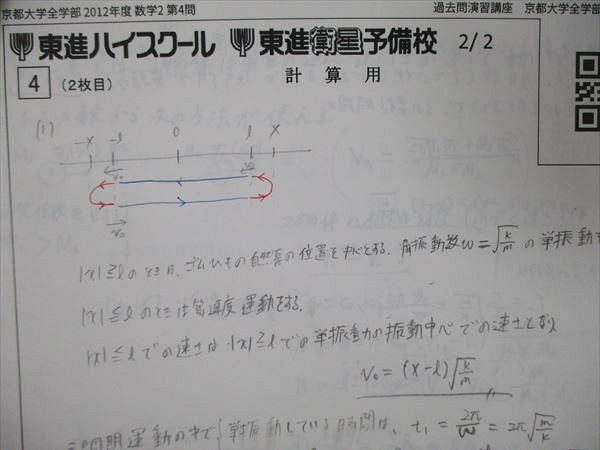 京都大学全学部 2012年度 数学2 第4問
過去問演習講座 京都大学全学部
東進ハイスクール 東進衛星予備校 2/2
4 (2枚目)
計算用
(1)
-X -l 0 l X
v₀ v₀
v₀
|x|≧lのときは、ゴムひもの自然長の位置を中心とする、角振動数ω=√(k/m) の単振動を
|x|≦lのときは等速度運動をする.
|x|≦lでの速さは|x|≧lでの単振動の振動中心での速さとなり
v₀ = (X-l)√(k/m)
この周期運動の中で単振動している時間は、t₁ = 2π/ω = 2π√(m/k)